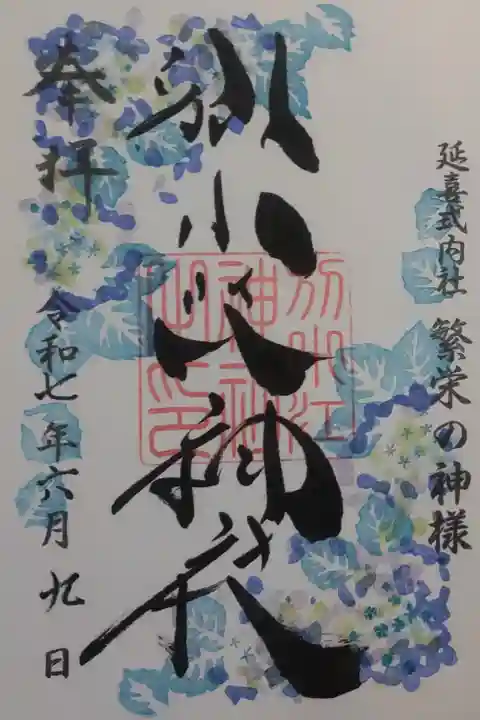 延喜式内社 繁栄の神様
別小江神社
別小江
神社
之印
奉拝
令和七年六月九日